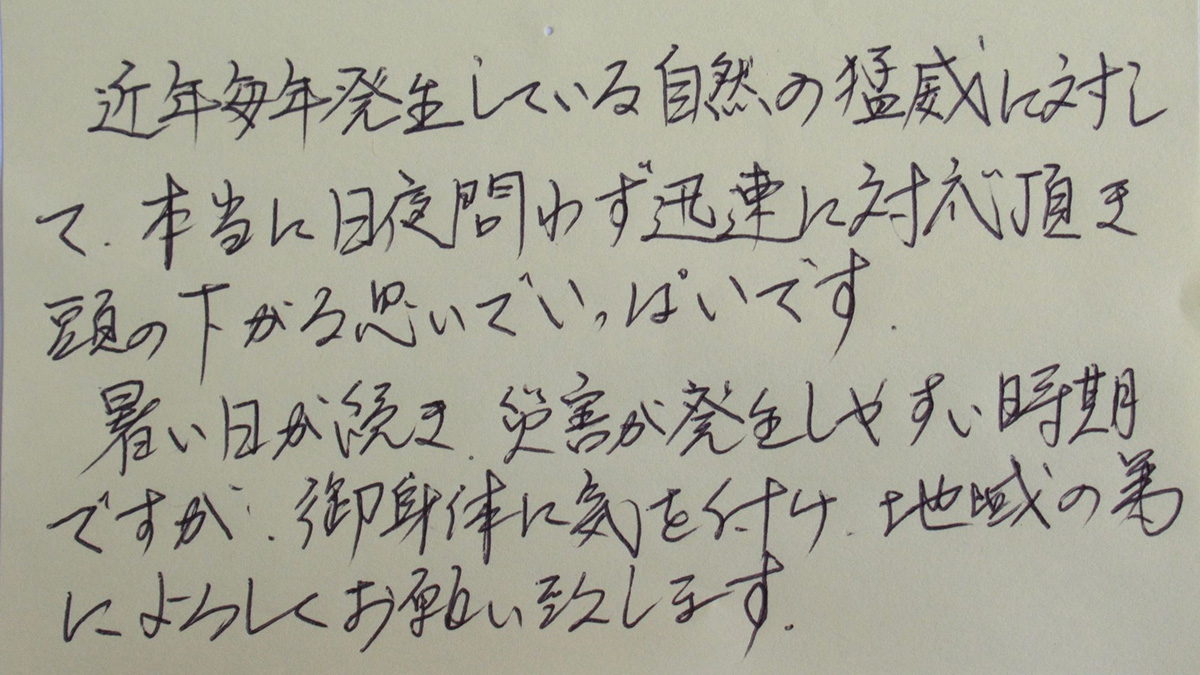 近年毎年発生している自然の猛威に対し
て、本当に日夜問わず迅速に対応頂き
頭の下がる思いでいっぱいです。
暑い日が続き、災害が発生しやすい時期
ですが、御身体に気を付け、地域の為
によろしくお願い致します。